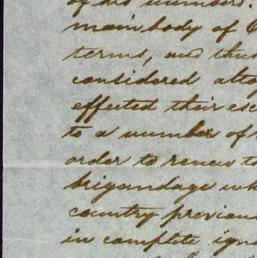 of his numbers.
main body of
terms, and thus
considered
effected their
to a number of
order to renew
brigandage
country
in complete